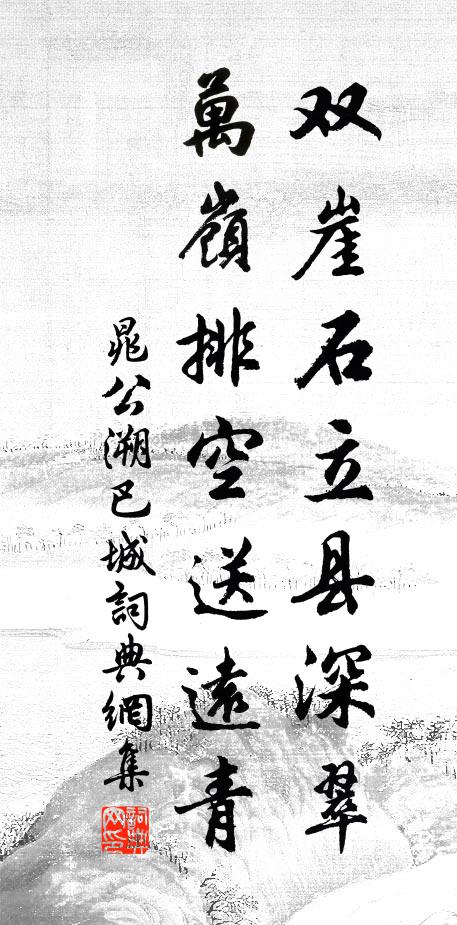 双崖石立县深翠
萬嶺排空送遠青
晁公溯巴城詞典網集